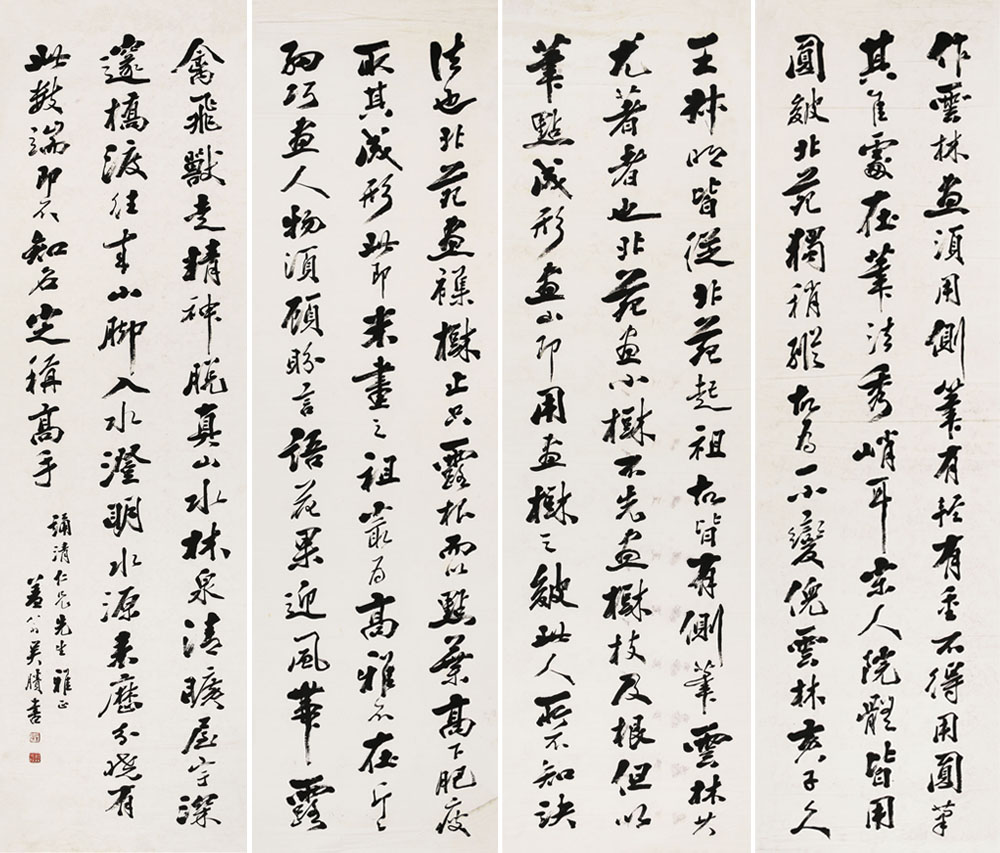 作雲林畫須用側筆有輕有重不得用圓筆
其佳處在筆法秀峭耳宋人院體皆用
圓皴北苑獨稍縱故為一小變倪雲林黃子久
王叔明皆從北苑起祖故皆有側筆雲林其
尤著者也北苑畫小樹不先畫樹枝及根但以
筆點成形畫山即用畫樹之皴此人所不知訣
法也北苑畫雜樹止只露根而以點葉高下肥瘦
取其成形此即米畫之祖最為高雅不在斤々
細巧畫人物須顧盼言語花果迎風帶露
禽飛獸走精神脫真山水林泉清曠屋宇深
邃橋渡往來山腳入水澄明水源來歷分曉有
此數端即不知名定稱高手
彌清仁兄先生雅正
蓋翁吳勝書